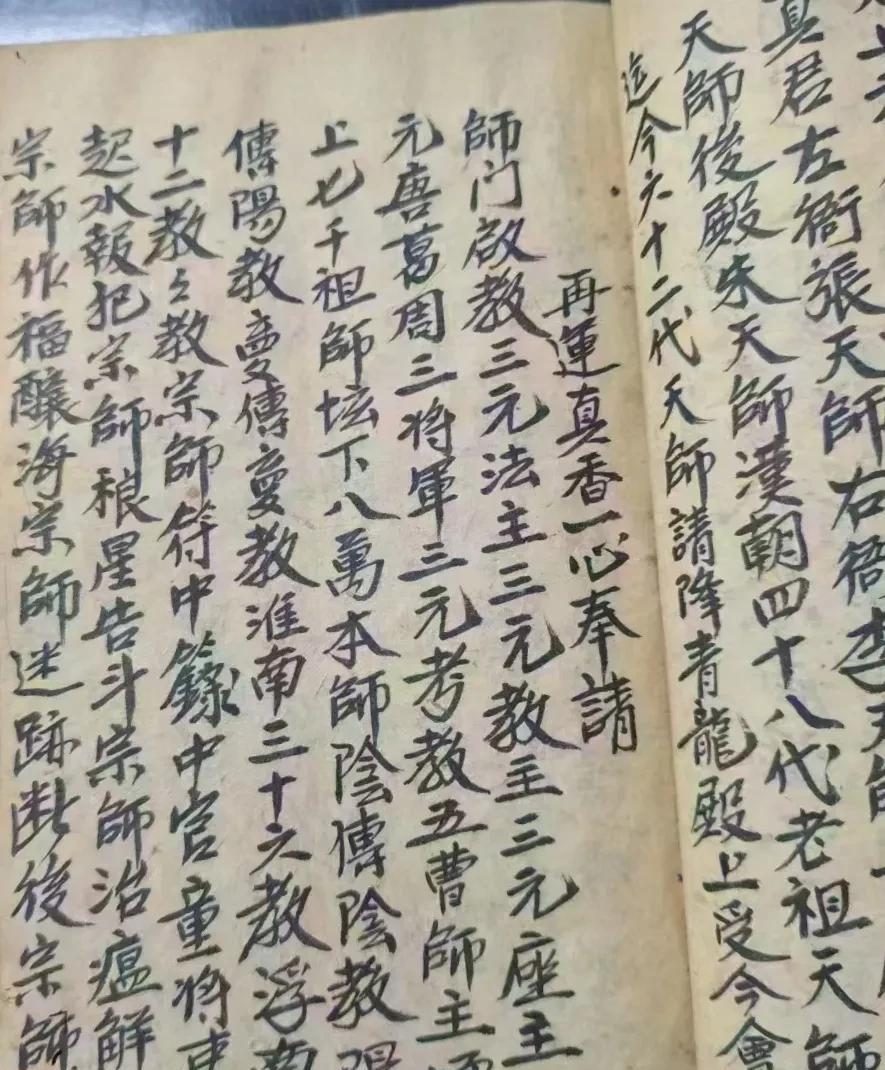 真君左衙張天師右衙李天師
天師後殿朱天師漢朝四十八代老祖天師
迄今六十二代天師請降青龍殿上受今會
再運真香一心奉請
師门啟教三元法主三元教主三元座主
元唐葛周三将軍三元考教五曹師主師
上七千祖師坛下八萬本師陰傳陰教陽
傳陽教夢傳夢教淮南三十六教浮南
十二教々教宗師符中籙中官童将吏
起水報把宗師稂星告斗宗師治瘟解
宗師作福釀海宗師迷跡断後宗師